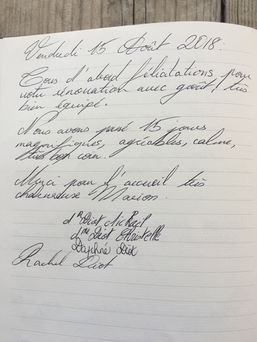 Vendredi 15 Août 2018.
Tous d'abord félicitations, pour
votre rénovation avec goût, très
bien équipé.
Nous avons passé 15 jours
magnifiques, agréables, calme,
très bon coin.
Merci pour l'accueil très
chaleureuse Marion.
Diot Mickaël
Diot Christelle
Daphné Diot
Rachel Diot